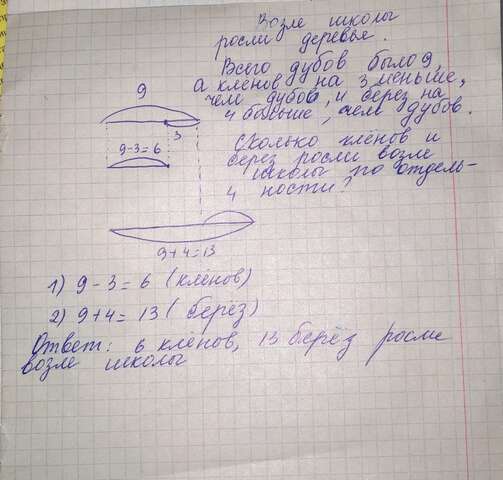 Возле школы
росли деревье.
Всего дубов было 9,
а клёнов на 3 меньше,
чем дубов, и берёз на
4 больше, чем дубов.
Сколько клёнов и
берёз росли возле
школы по отдель-
ности?
9
3
9-3=6
4
9+4=13
1) 9-3=6 (клёнов)
2) 9+4=13 (берёз)
Ответ: 6 клёнов, 13 берёз росли
возле школы